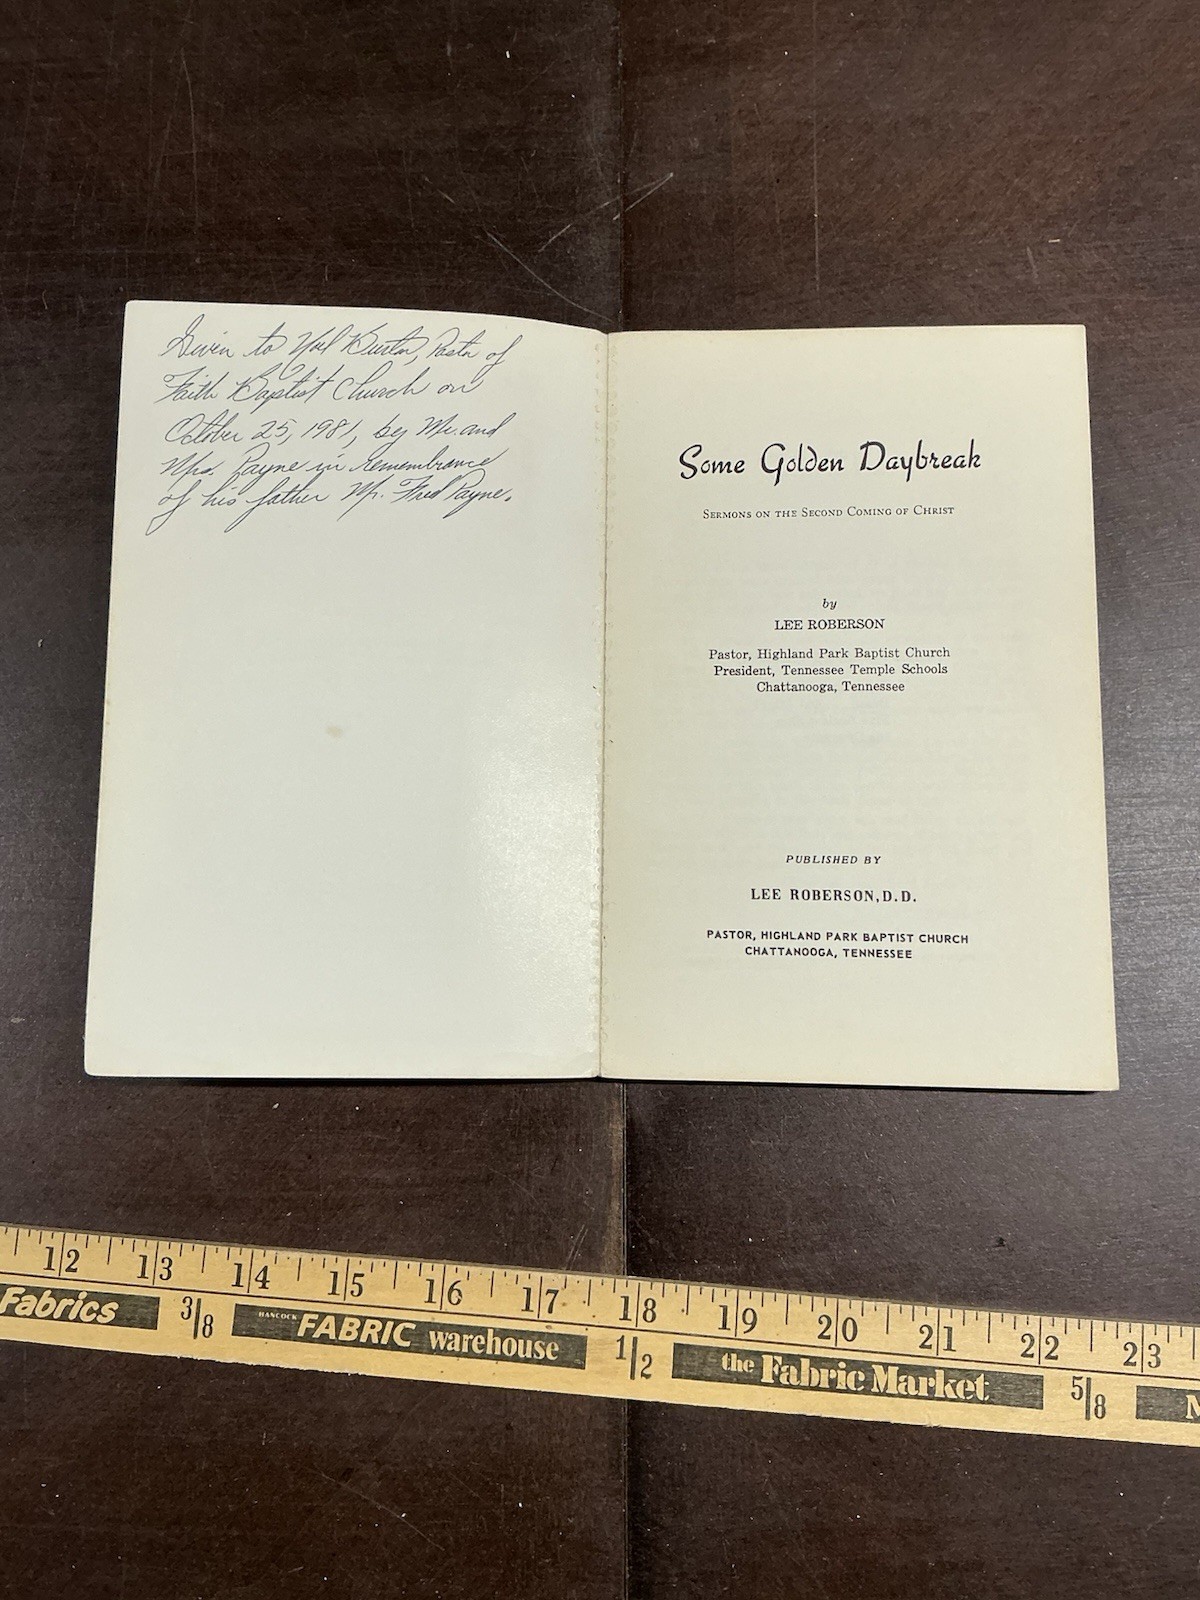 Given to Burton, Pastor of
Faith Baptist Church on
October 25, 1981, by Mr. and
Mrs. Payne in Remembrance
of his father Mr. Fred Payne.
Some Golden Daybreak
SERMONS ON THE SECOND COMING OF CHRIST
by
LEE ROBERSON
Pastor, Highland Park Baptist Church
President, Tennessee Temple Schools
Chattanooga, Tennessee
PUBLISHED BY
LEE ROBERSON, D.D.
PASTOR, HIGHLAND PARK BAPTIST CHURCH
CHATTANOOGA, TENNESSEE
12 13 14 15 16 17 18 19 20 21 22 23
Fabrics 3/8 HANCOCK FABRIC warehouse 1/2 the Fabric Market 5/8 M